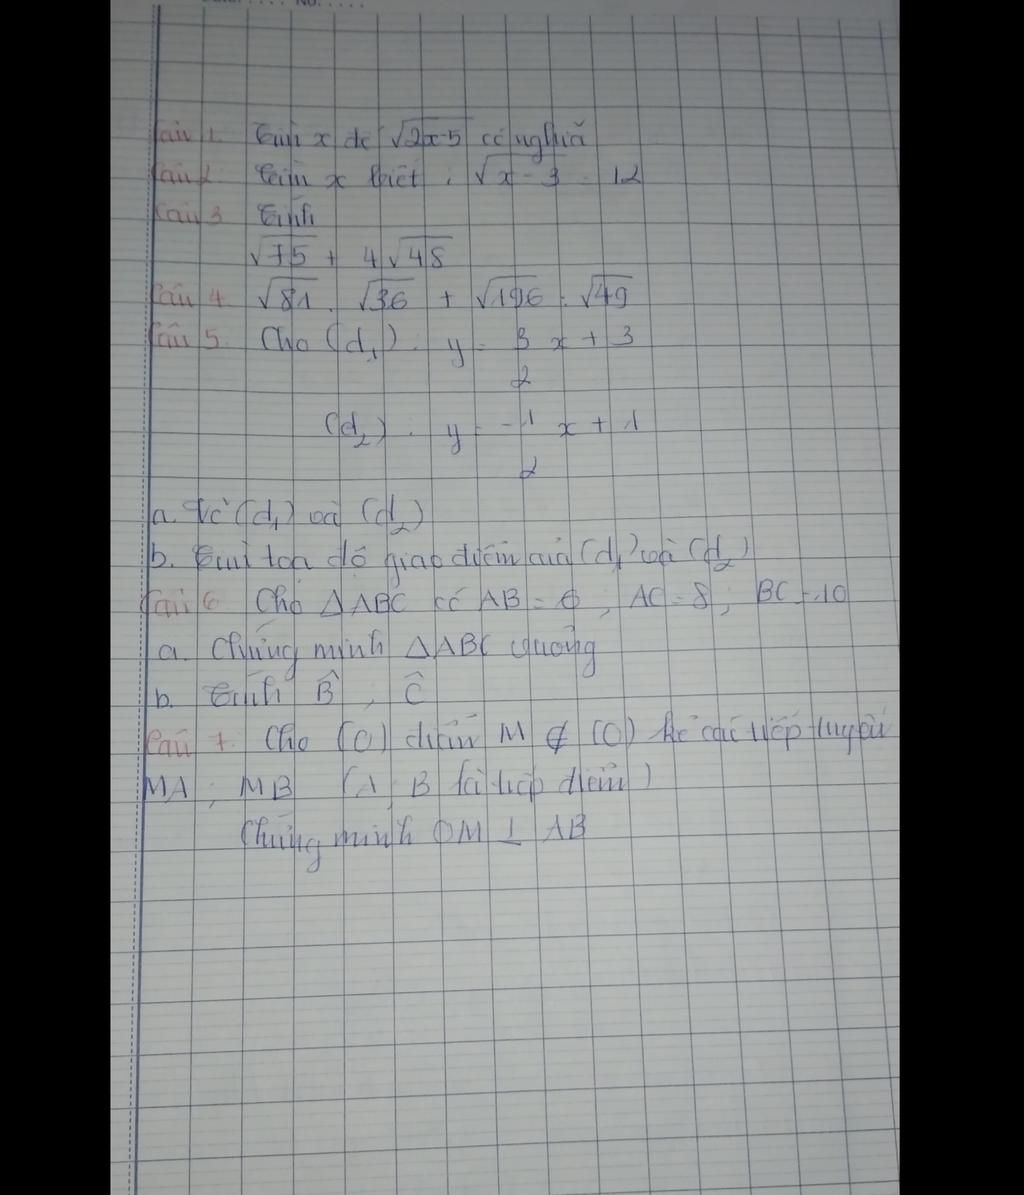 No: ....
Câu 1. Tìm x để √2x-5 có nghĩa
Câu 2. Tìm x biết : √x-3 = 12
Câu 3. Tính
√75 + 4√48
Câu 4. √81 . √36 + √196 : √49
Câu 5. Cho (d₁) : y = 3/2 x + 3
(d₂) : y = -1/2 x + 1
a. Vẽ (d₁) và (d₂)
b. Tìm tọa độ giao điểm của (d₁) và (d₂)
Câu 6. Cho ΔABC có AB = 6 ; AC = 8 ; BC = 10
a. Chứng minh ΔABC vuông
b. Tính B̂ , Ĉ
Câu 7. Cho (O) điểm M ∉ (O) kẻ các tiếp tuyến
MA ; MB (A, B là tiếp điểm)
Chứng minh OM ⊥ AB